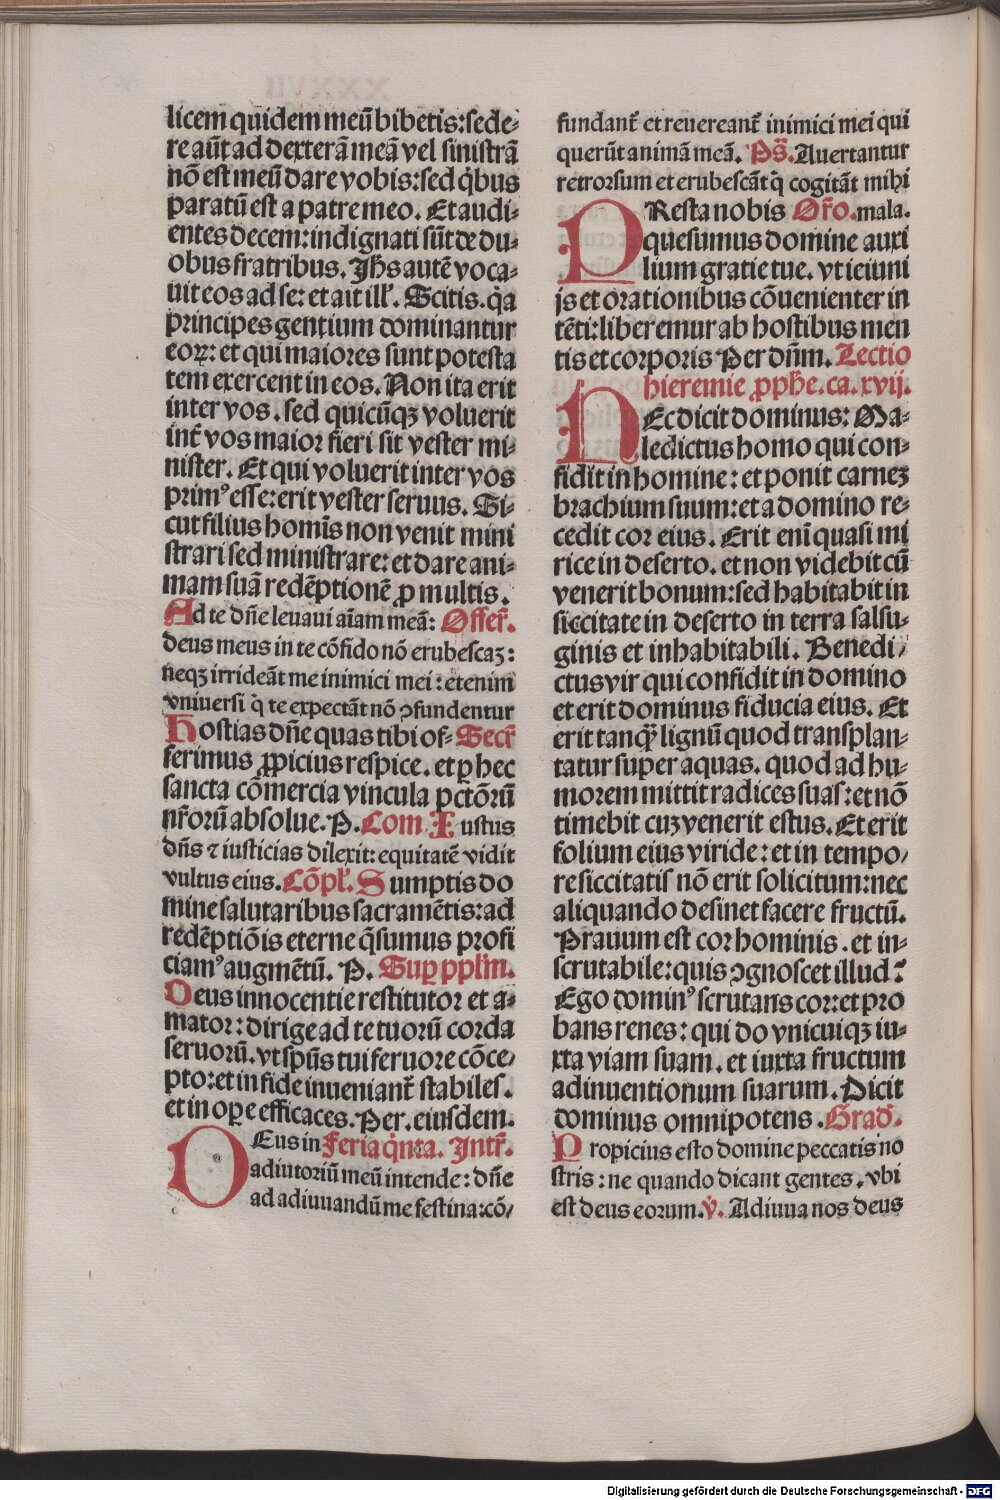 licem quidem meū bibetis: sede-
re aūt ad dexterā meā vel sinistrā
nō est meū dare vobis: sed q̇bus
paratū est a patre meo. Et audi-
entes decem: indignati sūt de du-
obus fratribus. Jh̄s autē voca-
uit eos ad se: et ait ill'. Scitis. q̇a
principes gentium dominantur
eoꝝ: et qui maiores sunt potesta
tem exercent in eos. Non ita erit
inter vos. sed quicūqꝫ voluerit
int̄ vos maior fieri sit vester mi-
nister. Et qui voluerit inter vos
primꝰ esse: erit vester seruus. Si-
cut filius homīs non venit mini
strari sed ministrare: et dare ani-
mam suā redēptionē ꝓ multis.
Ad te dn̄e leuaui aīam meā: Offer̄.
deus meus in te cōfido nō erubescaꝫ:
neqꝫ irrideāt me inimici mei: etenim
vniuersi q̇ te expectāt nō ꝯfundentur
Hostias dn̄e quas tibi of- Secr̄
ferimus ꝓpicius respice. et ꝑ hec
sancta cōmercia vincula pctōrū
nr̄orū absolue. P. Com Iustus
dn̄s ⁊ iusticias dilexit: equitatē vidit
vultus eius. Cōpl'. Sumptis do
mine salutaribus sacramētis: ad
redēptiōis eterne q̄sumus profi
ciamꝰ augmētū. P. Suꝑ ppl'm.
Deus innocentie restitutor et a-
mator: dirige ad te tuorū corda
seruorū. vt spūs tui feruore cōce/
pto: et in fide inueniant̄ stabiles.
et in oꝑe efficaces. Per. eiusdem.
DEus in Feria q̇nta. Intr̄.
adiutoriū meū intende: dn̄e
ad adiuuandū me festina: cō/
fundant̄ et reuereant̄ inimici mei qui
querūt animā meā. Ps̄. Auertantur
retrorsum et erubescāt q̇ cogitāt mihi
PResta nobis Or̄o. mala.
quesumus domine auxi
lium gratie tue. vt ieiuni
js et orationibus cōuenienter in
tēti: liberemur ab hostibus men
tis et corporis Per dn̄m. Lectio
hieremie ꝓph̄e. ca. xvij.
HEc dicit dominus: Ma-
ledictus homo qui con-
fidit in homine: et ponit carneꝫ
brachium suum: et a domino re-
cedit cor eius. Erit enī quasi mi
rice in deserto. et non videbit cū
venerit bonum: sed habitabit in
siccitate in deserto in terra salsu-
ginis et inhabitabili. Benedi/
ctus vir qui confidit in domino
et erit dominus fiducia eius. Et
erit tanq̄ lignū quod transplan-
tatur super aquas. quod ad hu-
morem mittit radices suas: et nō
timebit cuꝫ venerit estus. Et erit
folium eius viride: et in tempo/
re siccitatis nō erit solicitum: nec
aliquando desinet facere fructū.
Prauum est cor hominis. et in-
scrutabile: quis ꝯgnoscet illud?
Ego dominꝰ scrutans cor: et pro
bans renes: qui do vnicuiqꝫ iu-
xta viam suam. et iuxta fructum
adinuentionum suarum. Dicit
dominus omnipotens. Grad'.
Propicius esto domine peccatis no
stris: ne quando dicant gentes. vbi
est deus eorum. V̇. Adiuua nos deus
Digitalisierung gefördert durch die Deutsche Forschungsgemeinschaft - DFG